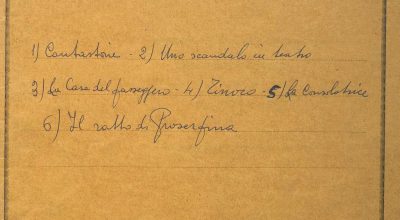 1) Cantastorie - 2) Uno scandalo in teatro
3) La Casa del passeggero - 4) Tinoco - 5) La Consolatrice
6) Il ratto di Proserpina